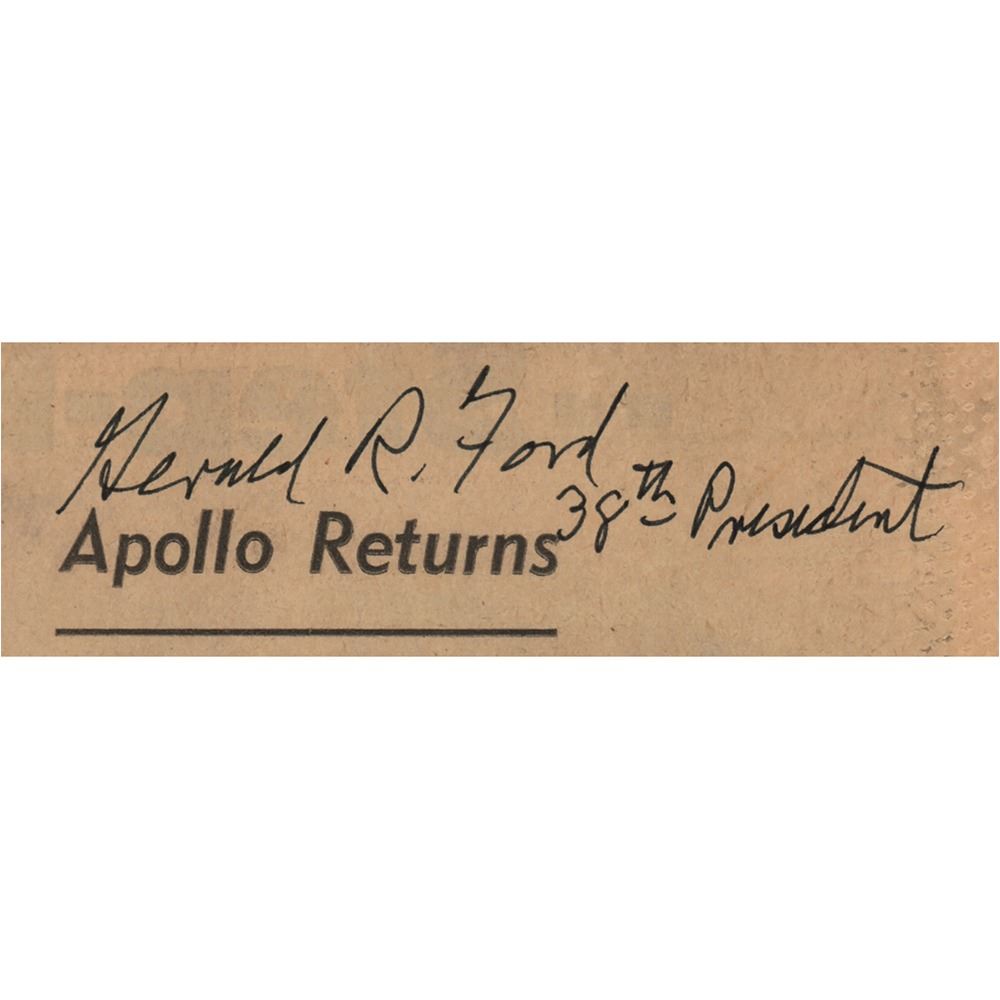 Gerald R. Ford
38th President
Apollo Returns